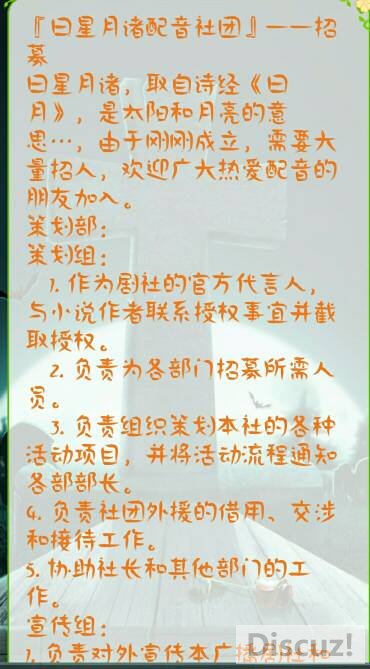 『日星月诸配音社团』——招
募
日星月诸，取自诗经《日
月》，是太阳和月亮的意
思…，由于刚刚成立，需要大
量招人，欢迎广大热爱配音的
朋友加入。
策划部：
策划组：
1. 作为剧社的官方代言人，
与小说作者联系授权事宜并截
取授权。
2. 负责为各部门招募所需人
员。
3. 负责组织策划本社的各种
活动项目，并将活动流程通知
各部部长。
4. 负责社团外援的借用、交涉
和接待工作。
5. 协助社长和其他部门的工
作。
宣传组：
1. 负责对外宣传本广播剧社和
Discuz!